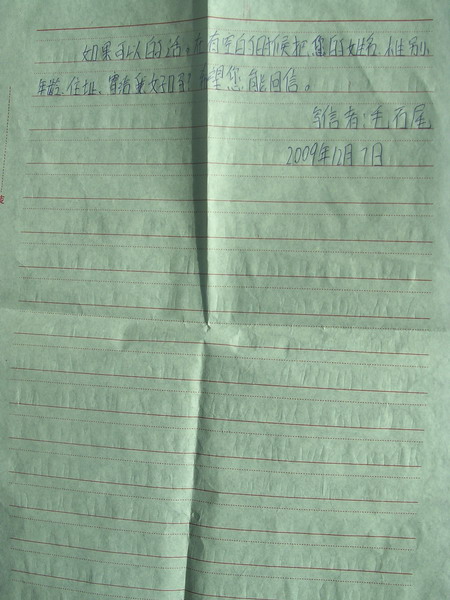 如果可以的话。在有空的时候把您的姓名、性别、
年龄、住址、寄给我好吗？希望您能回信。
写信者：毛石尾
2009年12月7日